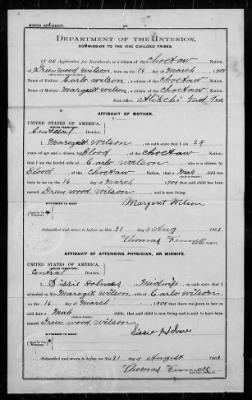 BIRTH AFFIDAVIT.
DEPARTMENT OF THE INTERIOR,
COMMISSION TO THE FIVE CIVILIZED TRIBES.
IN RE Application for Enrollment, as a citizen of the Choctaw Nation,
of Green wood Wilson, born on the 16 day of March, 190
Name of Father: Carlo Wilson a citizen of the Choctaw Nation.
Name of Mother: Margret Wilson a citizen of the Choctaw Nation.
Post-office, Alikchi Ind. Ter.
AFFIDAVIT OF MOTHER.
UNITED STATES OF AMERICA,
INDIAN TERRITORY,
Central District.
I, Margret Wilson, on oath state that I am 29
years of age and a citizen, by Blood, of the Choctaw Nation;
that I am the lawful wife of Carlo Wilson, who is a citizen, by
Blood of the Choctaw Nation; that a Male child was
born to me on the 16 day of March, 190 ; that said child has been
named Green wood Wilson, and is now living.
Margret Wilson
Subscribed and sworn to before me this 21 day of Aug 1901.
Thomas Fennell
AFFIDAVIT OF ATTENDING PHYSICIAN, OR MIDWIFE.
UNITED STATES OF AMERICA,
INDIAN TERRITORY,
Central District.
I, Sissie Holmes, a midwife, on oath state that I
attended on Mrs. Margret Wilson, wife of Carlo Wilson
on the 16 day of March, 190 ; that there was born to her on
said date a Male child; that said child is now living and is said to have been
named Green wood Wilson
Sissie Holmes
Subscribed and sworn to before me this 21 day of August 1901.
Thomas Fennell